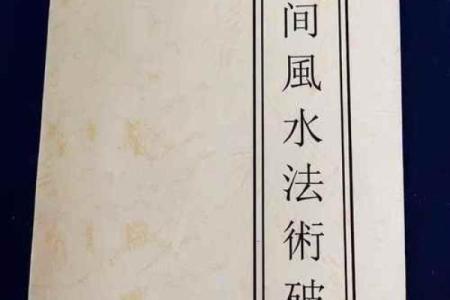 间風水法術破